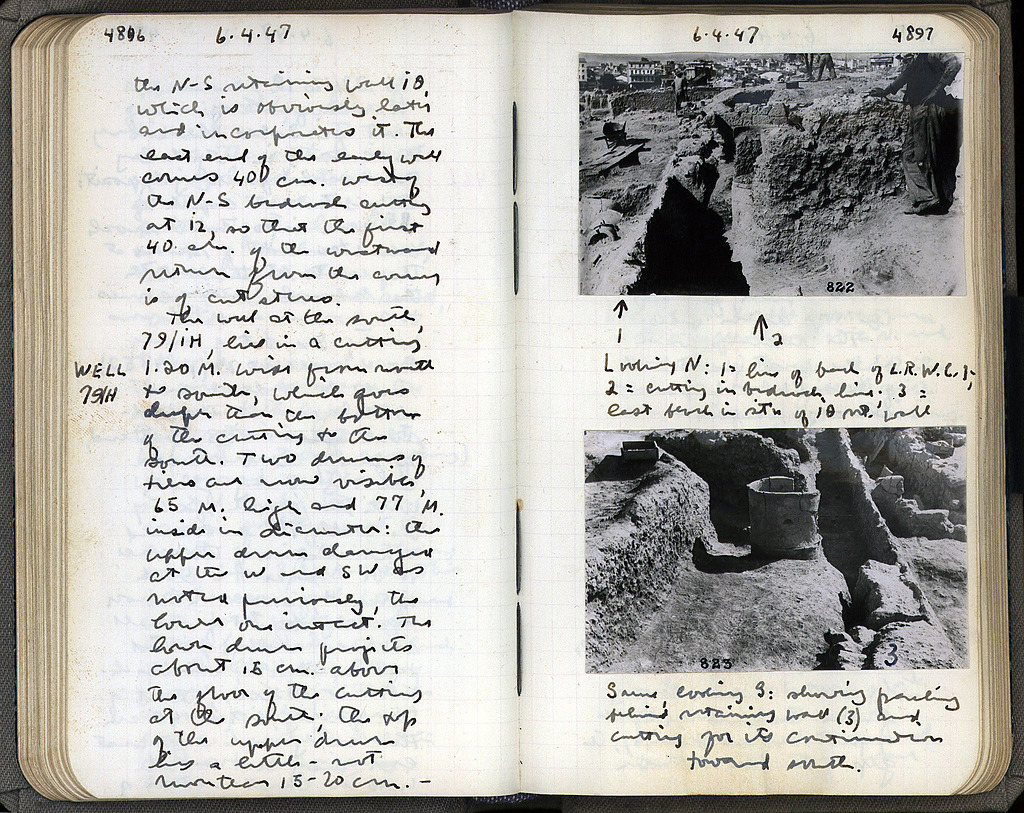 4896
6.4.47
the N-S retaining wall 10,
which is obviously later
and incorporates it. The
east end of the early wall
comes 40 cm. west of
the N-S bedrock cutting
at 12, so that the first
40 cm. of the westward
return from the corner
is of cut stones.
The well at the south,
79/IH, lies in a cutting
WELL
79/H
1.20 M. wide from north
to south, which goes
deeper than the bottom
of the cutting to the
south. Two drums of
tiers are now visible,
65 M. high and 77 M.
inside in diameter: the
upper drum damaged
at the W and SW as
noted previously, the
lower one intact. The
lower drum projects
about 15 cm. above
the floor of the cutting
at the south; the top
of the upper drum
lies a little - not
more than 15-20 cm. -
6.4.47
4897
822
1
2
Looking N: 1 = line of back of L.R.W.C.
2 = cutting in bedrock line; 3 =
east bench in situ of 10 ret. wall
823
3
Same, looking S: showing packing
behind retaining wall (3) and
cutting for its continuation
toward south.